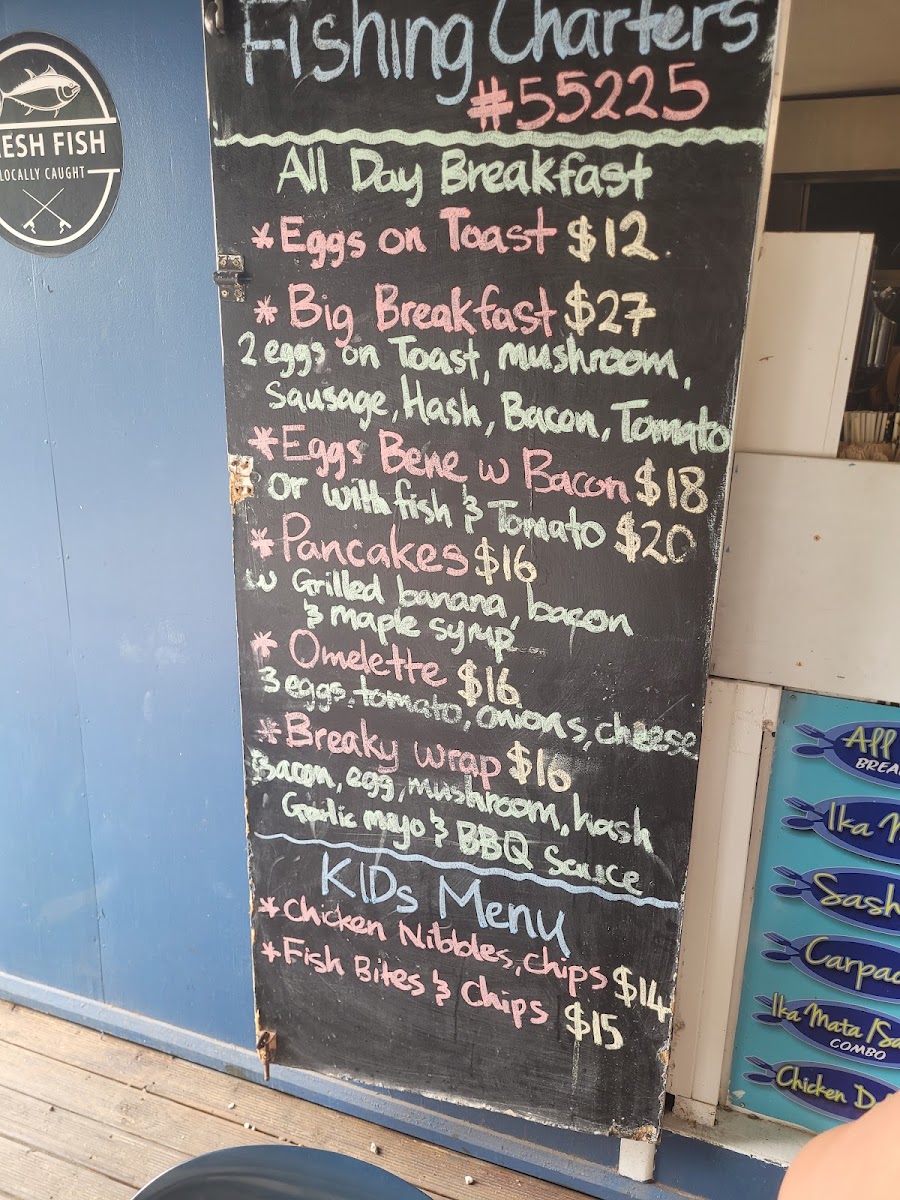 Fishing Charters
#55225
All Day Breakfast
* Eggs on Toast $12
* Big Breakfast $27
2 eggs on Toast, mushroom,
Sausage, Hash, Bacon, Tomato
* Eggs Bene w Bacon $18
or with fish & Tomato $20
* Pancakes $16
w Grilled banana, bacon
& maple syrup
* Omelette $16
3 eggs, tomato, onions, cheese
* Breaky wrap $16
Bacon, egg, mushroom, hash
Garlic mayo & BBQ Sauce
KIDs Menu
* Chicken Nibbles, chips $14
* Fish Bites & Chips $15
ESH FISH
LOCALLY CAUGHT
All
BREA
Ika M
Sash
Carpac
Ika Mata /Sa
COMBO
Chicken D